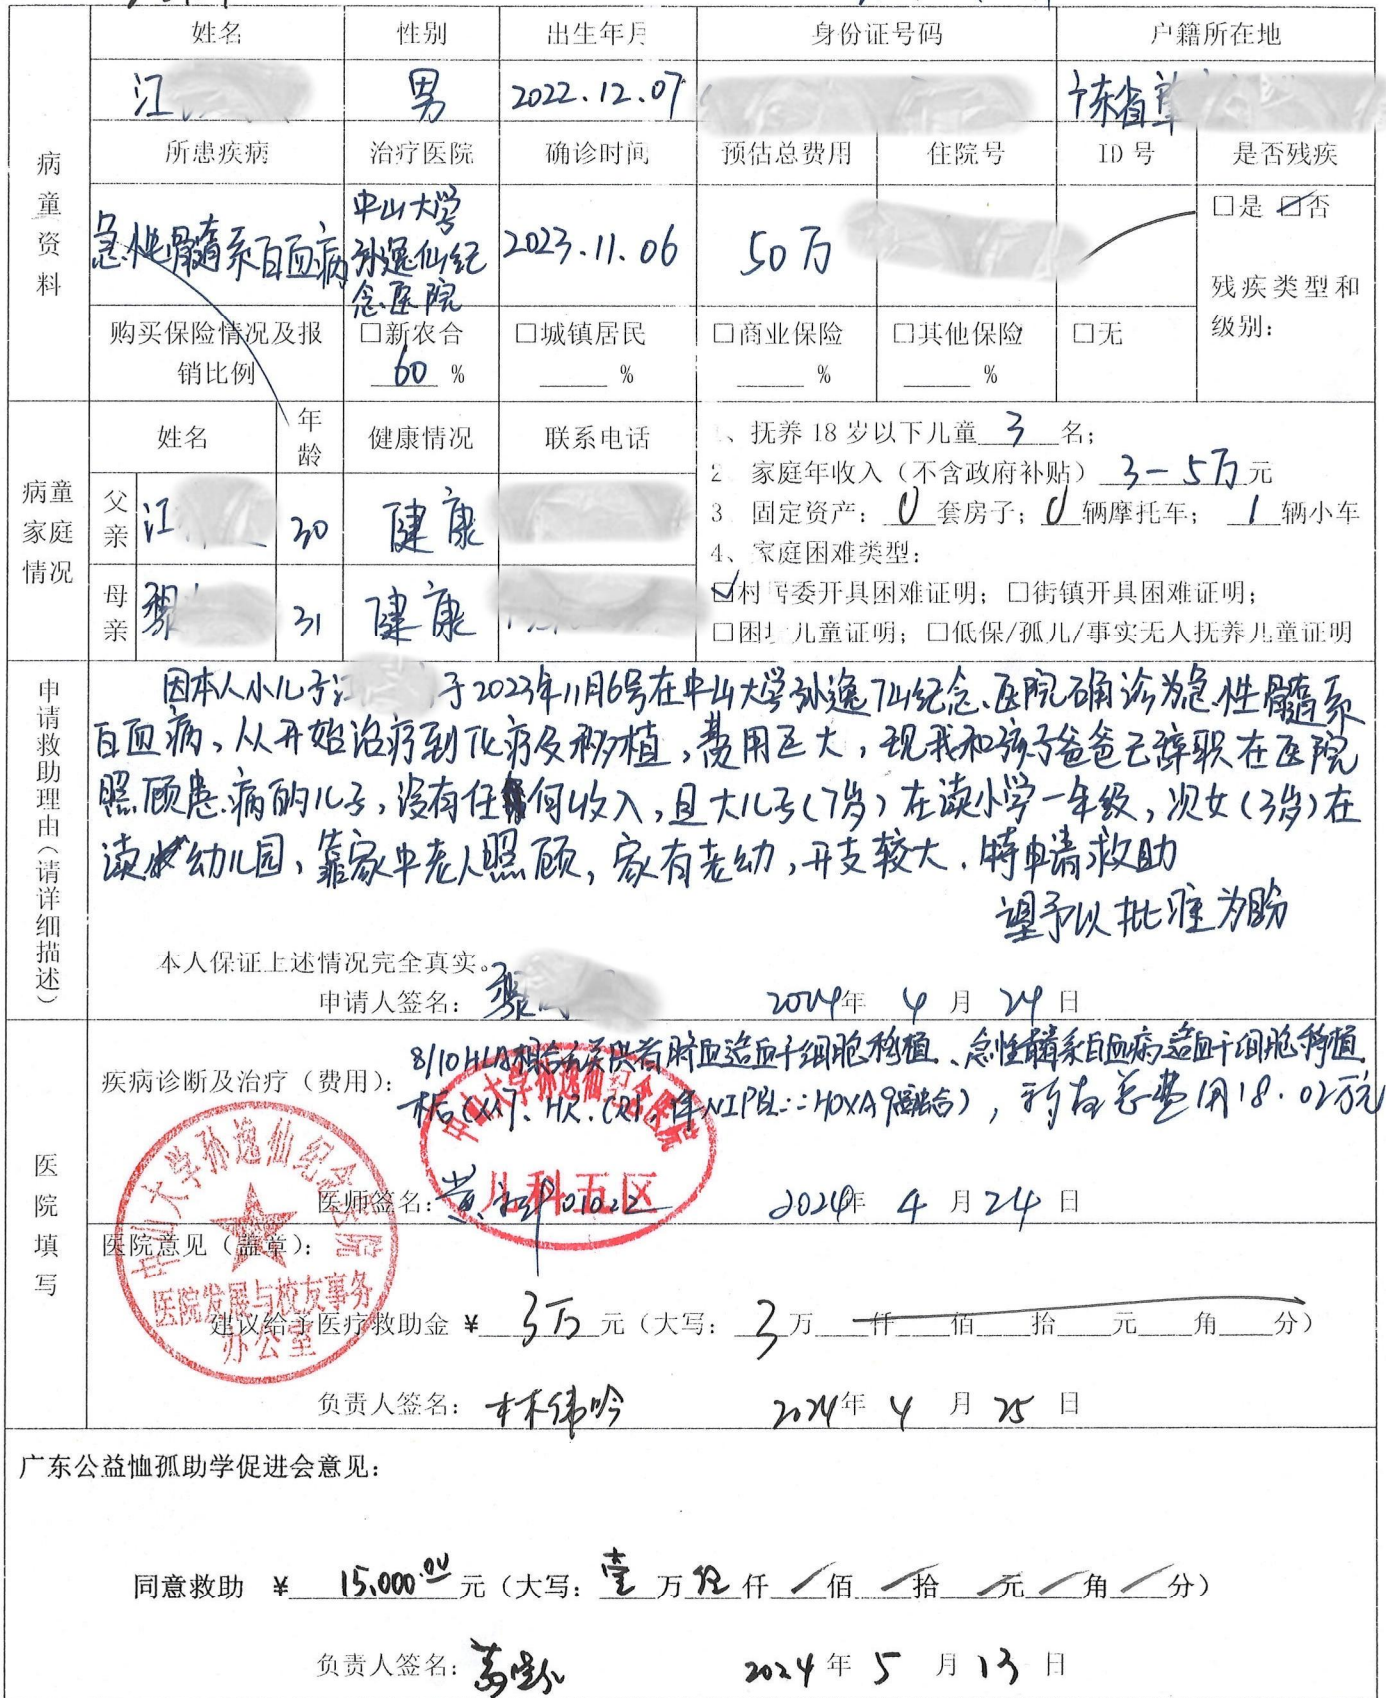 姓名 性别 出生年月 身份证号码 户籍所在地
江 男 2022.12.07 广东省
病童资料
所患疾病 治疗医院 确诊时间 预估总费用 住院号 ID 号 是否残疾
急性髓系白血病 中山大学孙逸仙纪念医院 2023.11.06 50万 □是 ☑否
残疾类型和级别：
购买保险情况及报销比例 □新农合 60 % □城镇居民 ___% □商业保险 ___% □其他保险 ___% □无
病童家庭情况
姓名 年龄 健康情况 联系电话
父亲 江 30 健康
母亲 黎 31 健康
1、抚养 18 岁以下儿童 3 名；
2、家庭年收入（不含政府补贴） 3-5万 元
3、固定资产： 0 套房子； 0 辆摩托车； 1 辆小车
4、家庭困难类型：
☑村居委开具困难证明；□街镇开具困难证明；
□困境儿童证明；□低保/孤儿/事实无人抚养儿童证明
申请救助理由（请详细描述）
因本人小儿子江 于2023年11月6号在中山大学孙逸仙纪念医院确诊为急性髓系
白血病，从开始治疗到化疗及移植，费用巨大，现我和孩子爸爸已辞职在医院
照顾患病的儿子，没有任何收入，且大儿子（7岁）在读小学一年级，次女（3岁）在
读幼儿园，靠家中老人照顾，家有老幼，开支较大．特申请救助
望予以批准为盼
本人保证上述情况完全真实。
申请人签名：黎 2024年 4 月 24 日
医院填写
疾病诊断及治疗（费用）： 8/10 HLA相合 供者脐血造血干细胞移植、急性髓系白血病造血干细胞移植
HOXA9融合），总费用18.02万元
中山大学孙逸仙纪念医院
儿科五区
医师签名：黄 01022 2024年 4 月 24 日
医院意见（盖章）：
中山大学孙逸仙纪念医院
医院发展与校友事务
办公室
建议给予医疗救助金 ¥ 3万 元（大写： 3 万 仟 佰 拾 元 角 分）
负责人签名：林伟吟 2024年 4 月 25 日
广东公益恤孤助学促进会意见：
同意救助 ¥ 15,000.00 元（大写：壹 万 伍 仟 / 佰 / 拾 / 元 / 角 / 分）
负责人签名： 2024 年 5 月 13 日